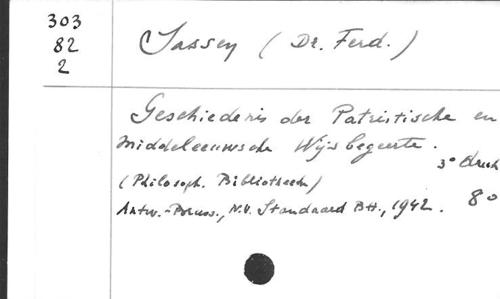 303
82
2
Sassen (Dr. Ferd.)
Geschiedenis der Patristische en
Middeleeuwsche Wijsbegeerte.
3e druk
(Philosoph. Bibliotheek)
Antw.-Bruss., N.V. Standaard BH., 1942. 80